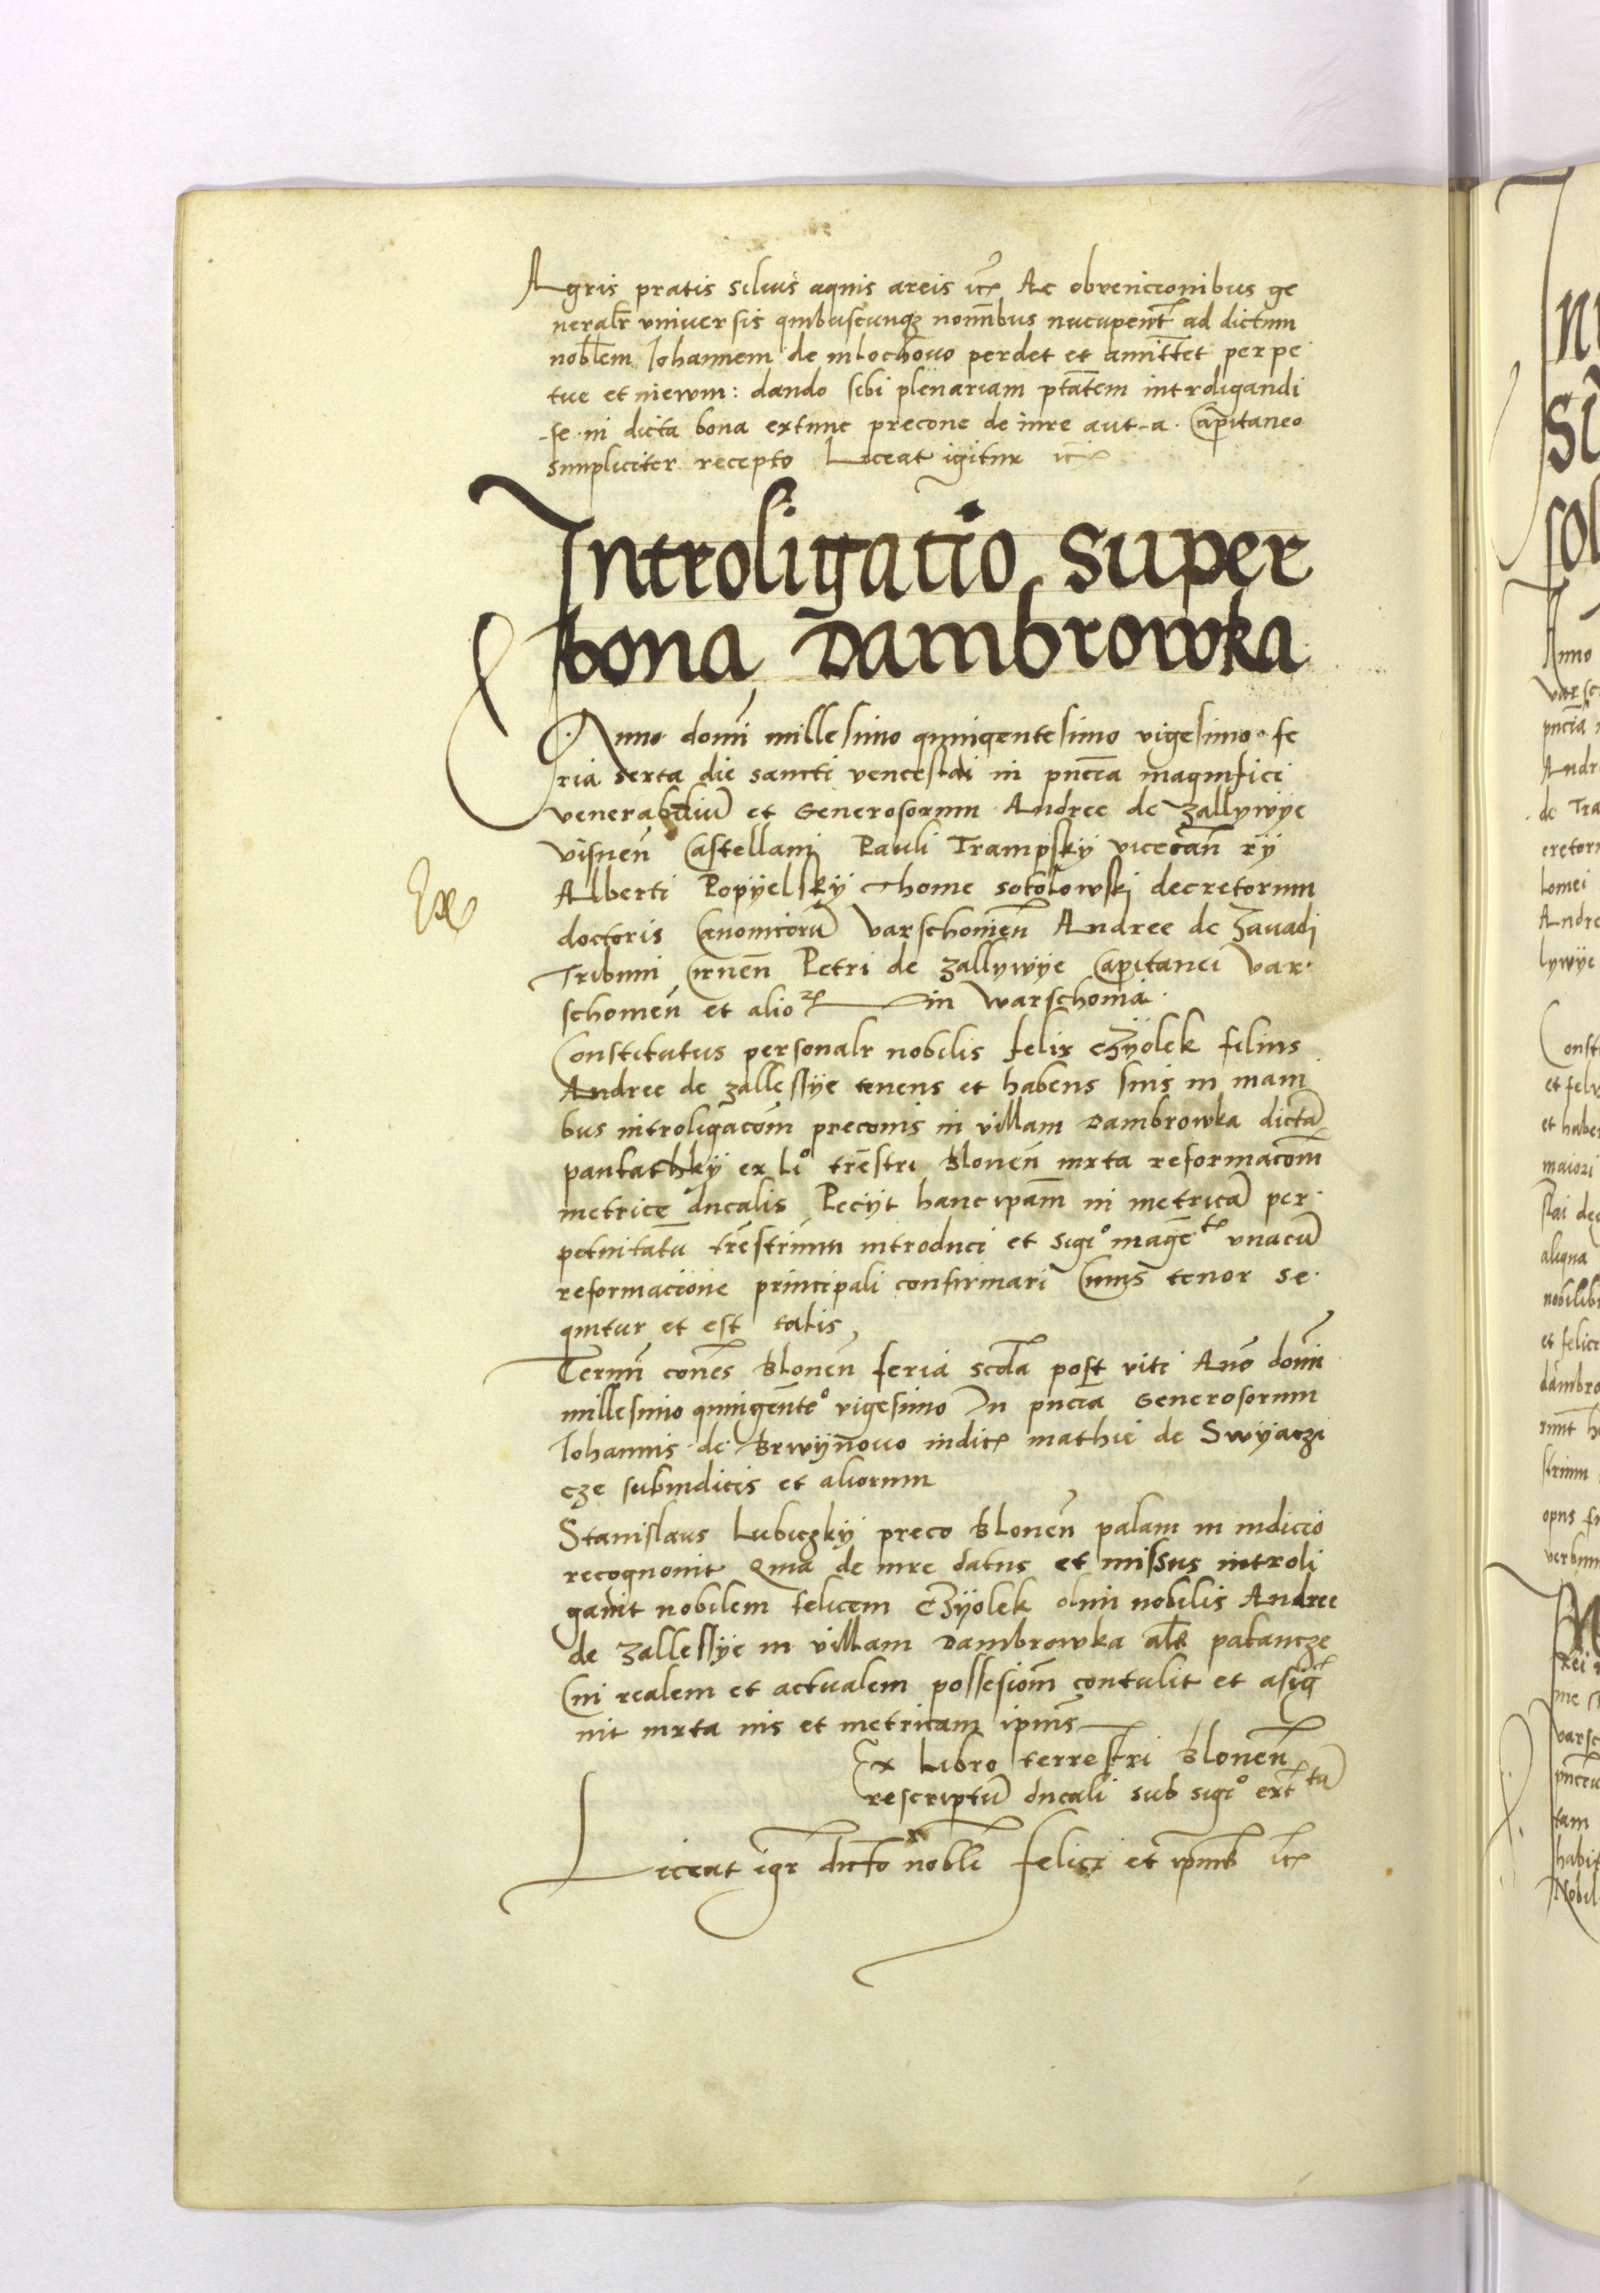 Agris pratis siluis aquis areis etc Ac obvencionibus ge
neralr vniuersis quibuscunqz nomibus nucupent ad dictum
noblem Johannem de mlochovo perdet et amittet perpe
tue et in ewm: dando sibi plenariam ptatem introligandi
se in dicta bona extunc precone de iure aut a Capitaneo
simpliciter recepto Liceat igitur etc
Introligacio super
bona Dambrowka
Anno domi millesimo quingentesimo vigesimo fe
ria sexta die sancti venceslai in pncia magnifici
venerabiliu et Generosorum Andree de Zallywye
visnen Castellani Pauli Trampsky vicecan ry
Ex
Alberti Popyelsky Thome sokolowski decretorum
doctoris Canonicoru varschouien Andree de Zavadi
Tribuni Cirnen Petri de Zallywye Capitanei var
schouien et alio in Warschouia
Constitutus personalr nobilis felix Czyolek filius
Andree de Zallessye tenens et habens suis in mani
bus introligacom preconis in villam Dambrowka dicta
pantathky ex li terestri blonen iuxta reformacom
metrice ducalis Peciyt hanc ipam in metrica per
petuitatu trestrium introduci et sigi mag unacu
reformacione principali confirmari Cuius tenor se
quitur et est talis
Termi cones blonen feria scda post viti Ano domi
millesimo quingento vigesimo In pncia Generosorum
Johannis de brwynovo iudic mathie de Swyaczi
cze subiudicis et aliorum
Stanislaus Lubiczky preco blonen palam in iudicio
recognouit Quia de iure datus et missus introli
gavit nobilem felicem Czyolek olim nobilis Andree
de Zallessye in villam Dambrowka als patancze
Cui realem et actualem possesiom contulit et asig
nit iuxta uis et metricam ipius
Ex Libro terrestri blonen
rescriptu ducali sub sigi ext tu
Liceat igr dicto nobli felici et ipius etc